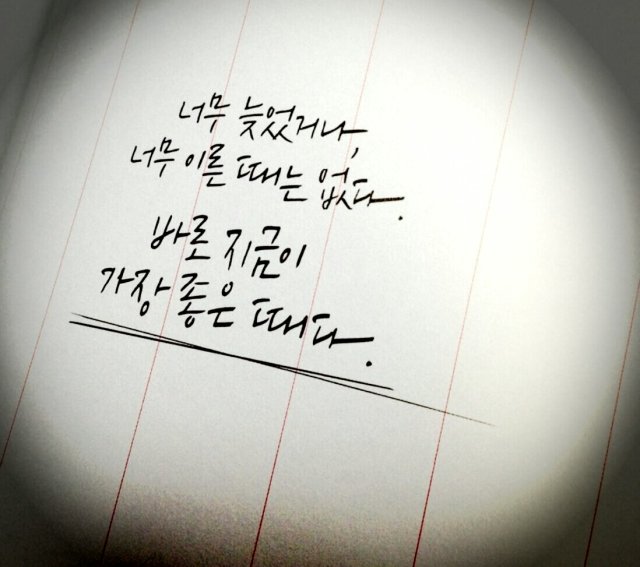 너무 늦었거나,
너무 이른 때는 없다.
바로 지금이
가장 좋은 때다.